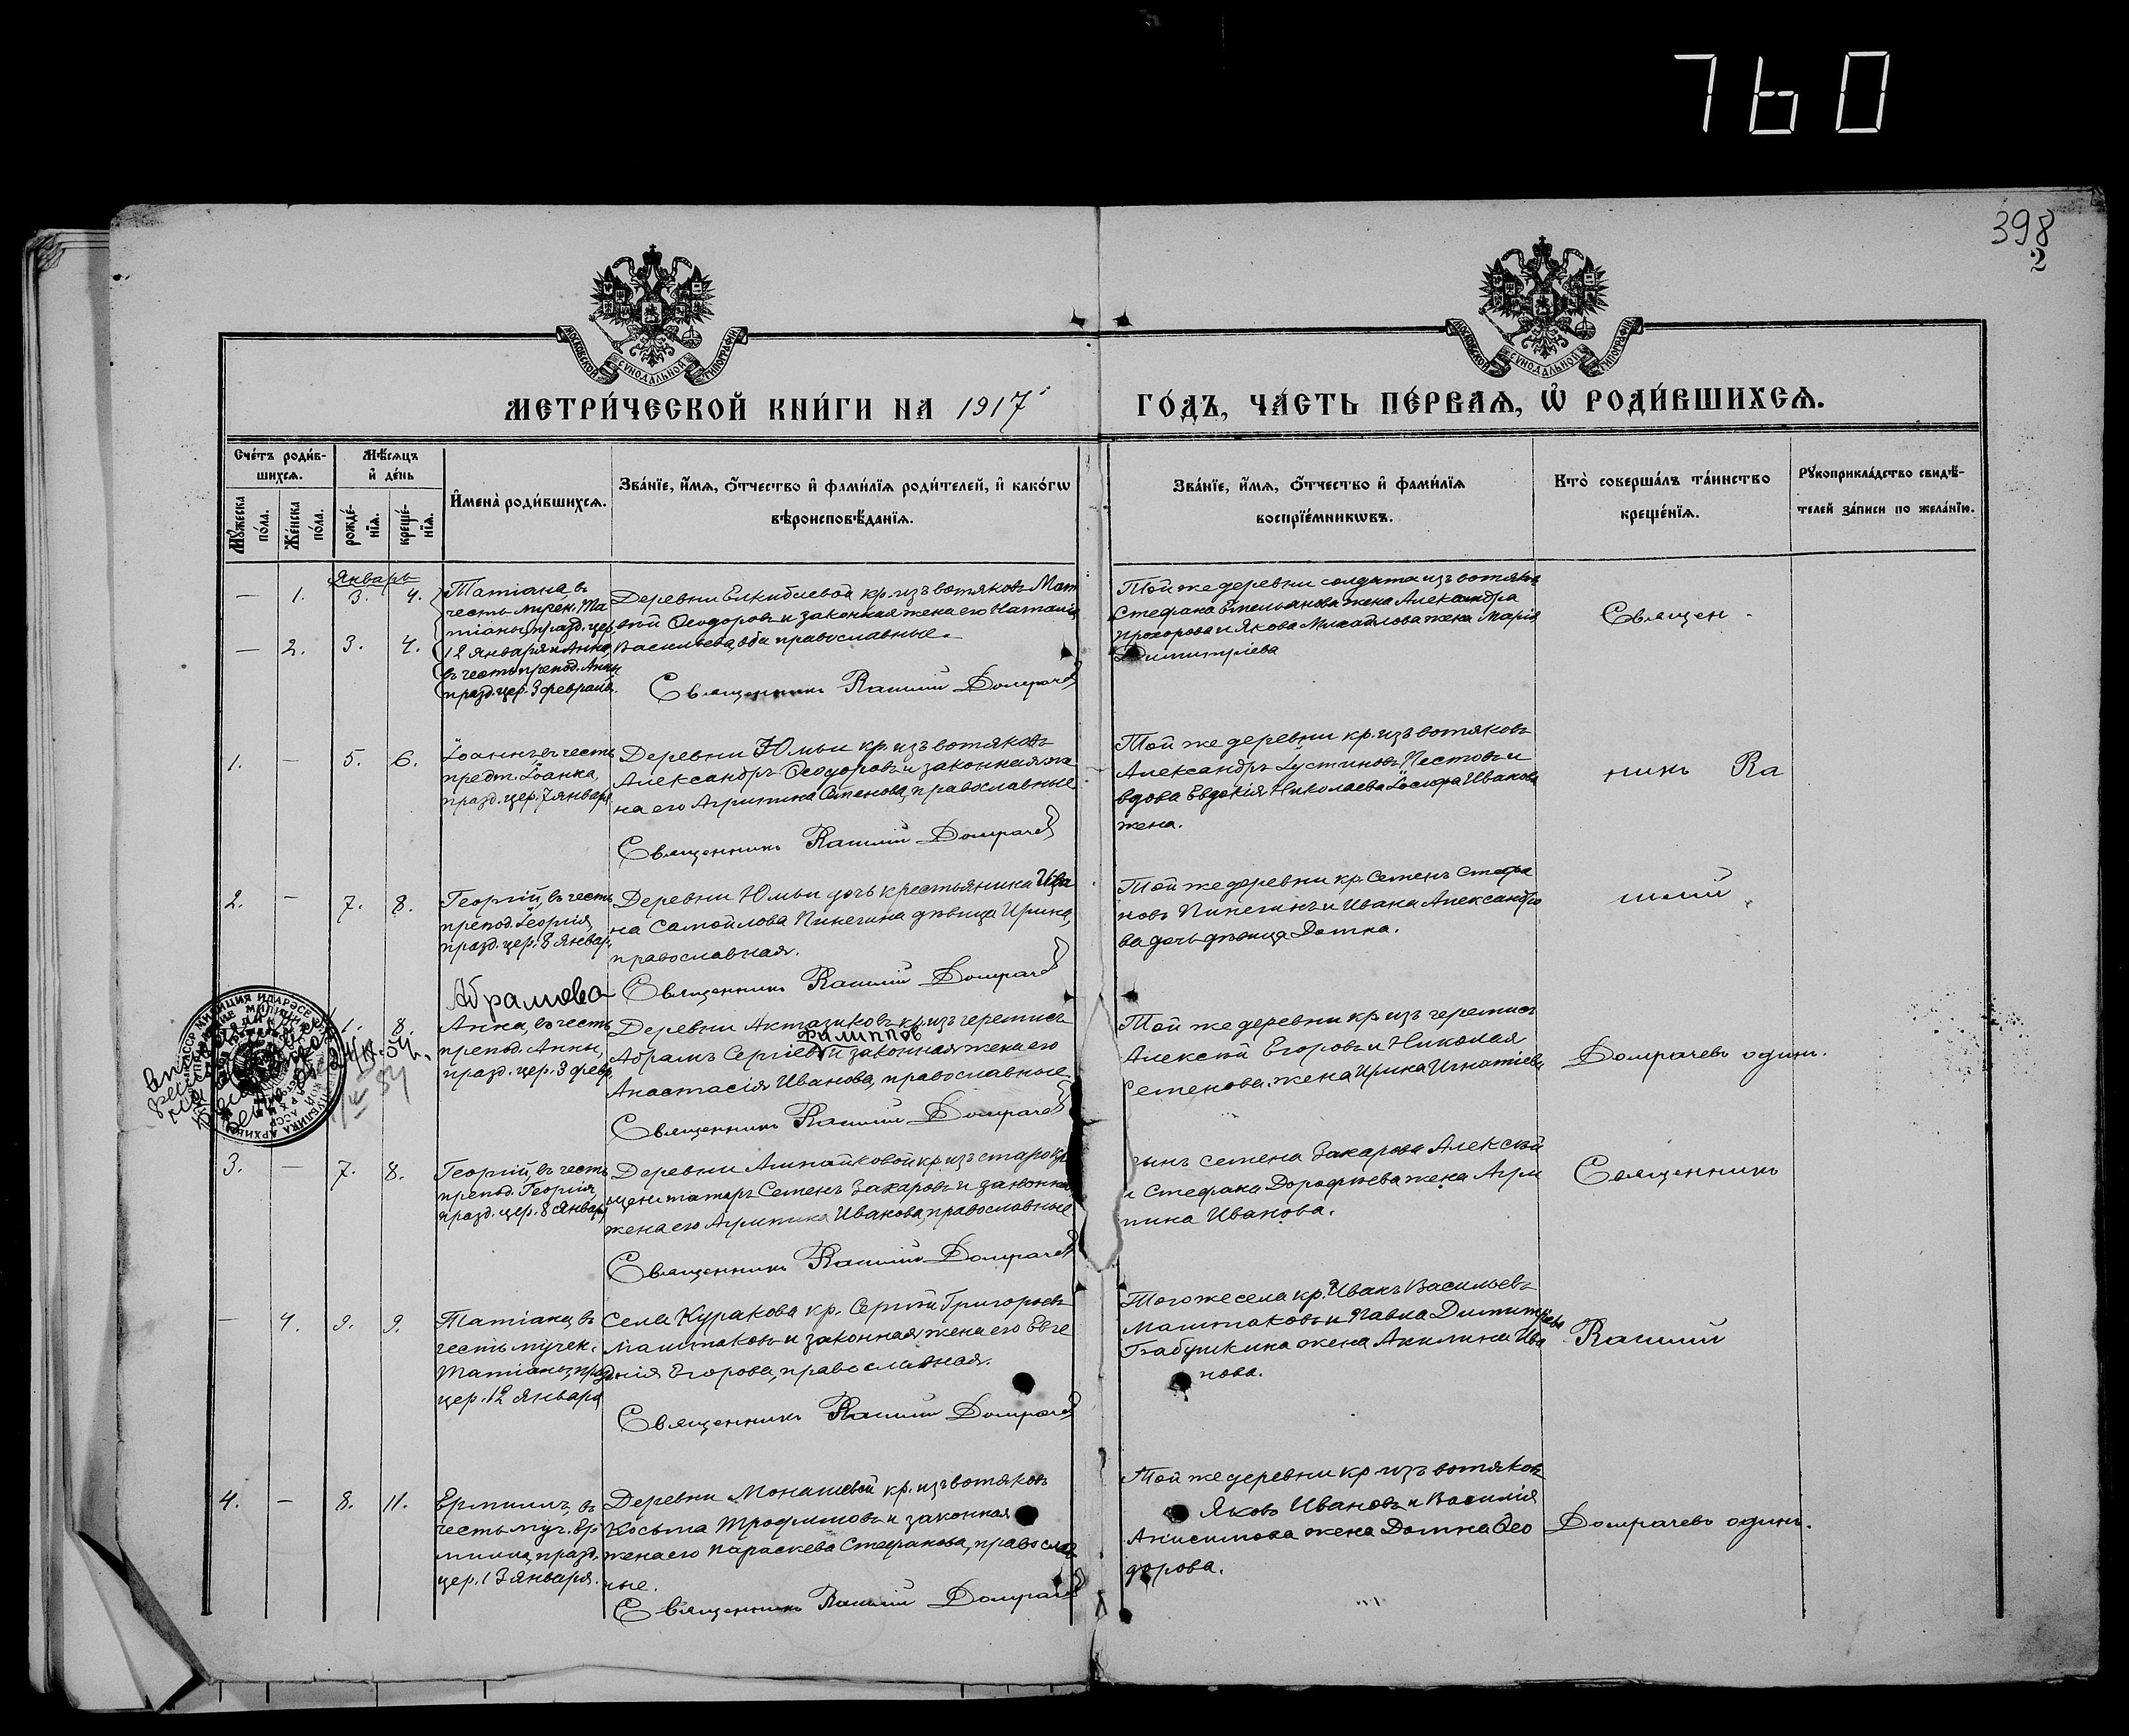 760
398
2
МОСКОВСКОЙ СУНОДАЛЬНОЙ ТИПОГРАФИИ
МОСКОВСКОЙ СУНОДАЛЬНОЙ ТИПОГРАФИИ
МЕТРИ́ЧЕСКОЙ КНИ́ГИ НА 1917
ГО́ДЪ, ЧА́СТЬ ПЕ́РВАЯ, Ѡ РОДИ́ВШИХСЯ.
Сче́тъ роди́в-
шихся.
Мѣ́сяцъ
и҆ де́нь
Мꙋ́жеска по́ла.
Же́нска по́ла.
рожде́-нїя.
креще́-нїя.
И҆мена̀ роди́вшихся.
Зва́нїе, и҆́мя, ѻ҆́тчество и҆ фами́лїя роди́телей, и҆ како́гѡ
вѣроисповѣ́данїя.
Зва́нїе, и҆́мя, ѻ҆́тчество и҆ фами́лїя
воспрїе́мникѡвъ.
Кто̀ соверша́лъ та́инство
креще́нїя.
Рꙋкоприкла́дство свидѣ́-
телей за́писи по жела́нїю.
Январь
— 1. 3. 4.
— 2. 3. 4.
Татіана, въ
честь мучен. Та
тіаны, празд. цер.
12 января и Анна,
въ честь препод. Анны
празд. цер. 3 февраля.
Деревни Елкибаевой кр. изъ вотяковъ Мат
вѣй Ѳеодоровъ и законная жена его Наталія
Васильева, оба православные.
Священникъ Домрачев
Той же деревни солдата изъ вотяковъ
Стефана Емельянова жена Александра
Прохорова и Якова Михайлова жена Марія
Димитріева
Священ
1. — 5. 6.
Іоаннъ, въ честь
предт. Іоанна,
празд. цер. 7 января
Деревни Юмьи кр. изъ вотяковъ
Александръ Ѳеодоровъ и законная же
на его Агрипина Семенова, православные
Священникъ Домрачев
Той же деревни кр. изъ вотяковъ
Александръ Іустиновъ Пестовъ и
вдова Евдокія Николаева Іосифа Иванова
жена.
никъ
2. — 7. 8.
Георгій, въ честь
препод. Георгія,
празд. цер. 8 январ.
Деревни Юмьи дочь крестьянина Ива
на Самойлова Пинегина дѣвица Ирина,
православная.
Священникъ Домрачев
Той же деревни кр. Семенъ Стефа
новъ Пинегинъ и Ивана Александро
ва дочь дѣвица Домна.
Абрамова
1. 8.
Анна, въ честь
препод. Анны,
празд. цер. 3 февр.
Деревни Актазиковъ кр. изъ черемисъ
Филиппов
Абрамъ Сергіевъ и законная жена его
Анастасія Иванова, православные
Священникъ Домрачев
Той же деревни кр. изъ черемисъ
Алексѣй Егоровъ и Николая
Семенова жена Ирина Игнатіева
Домрачевъ одинъ.
3. — 7. 8.
Георгій, въ честь
препод. Георгія,
празд. цер. 8 январ.
Деревни Алпайковой кр. изъ старокр
щен. татаръ Семенъ Захаровъ и законная
жена его Агрипина Иванова, православные
Священникъ Домрачев
сынъ Семена Захарова Алексѣй
и Стефана Дорофѣева жена Агри
пина Иванова.
Священникъ
— 4. 9. 9.
Татіана, въ
честь мучен.
Татіаны, празд
цер. 12 января
Села Куракова кр. Сергій Григорьевъ
Маштаковъ и законная жена его Евге
нія Егорова, православная.
Священникъ Домрачев
Того же села кр. Иванъ Васильевъ
Маштаковъ и Павла Димитріева
Бабушкина жена Акилина Ива
нова.
4. — 8. 11.
Ермилъ, въ
честь муч. Ер
мила, празд.
цер. 13 января.
Деревни Монашевой кр. изъ вотяковъ
Косьма Трофимовъ и законная
жена его Параскева Стефанова, православ
ные.
Священникъ Домрачев
Той же деревни кр. изъ вотяковъ
Яковъ Ивановъ и Василія
Анисимова жена Домна Ѳео
дорова.
Домрачевъ одинъ.